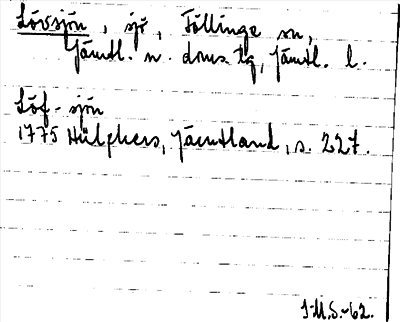 Lövsjön, sjö, Föllinge sn,
Jämtl. n. doms. tg, Jämtl. l.
Löf-sjön
1775 Hülphers, Jämtland, s. 227.
J.M.S.-62.